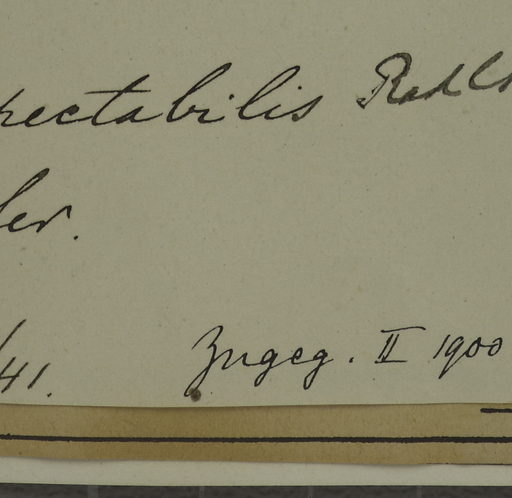 pectabilis Radlk
ler.
41. Zugeg. II 1900